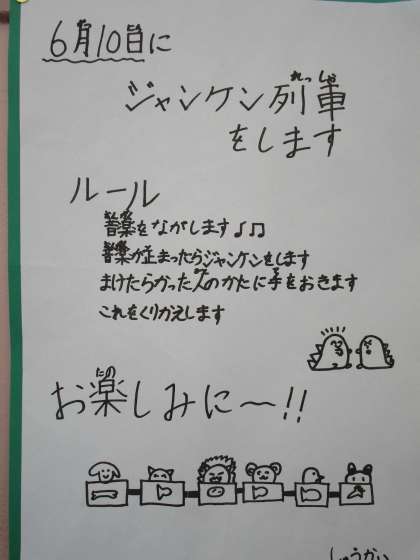 6月10日に
ジャンケン列車
をします
ルール
音楽をながします♪♫
音楽が止まったらジャンケンをします
まけたらかった人のかたに手をおきます
これをくりかえします
お楽しみに〜!!
しゅうかい